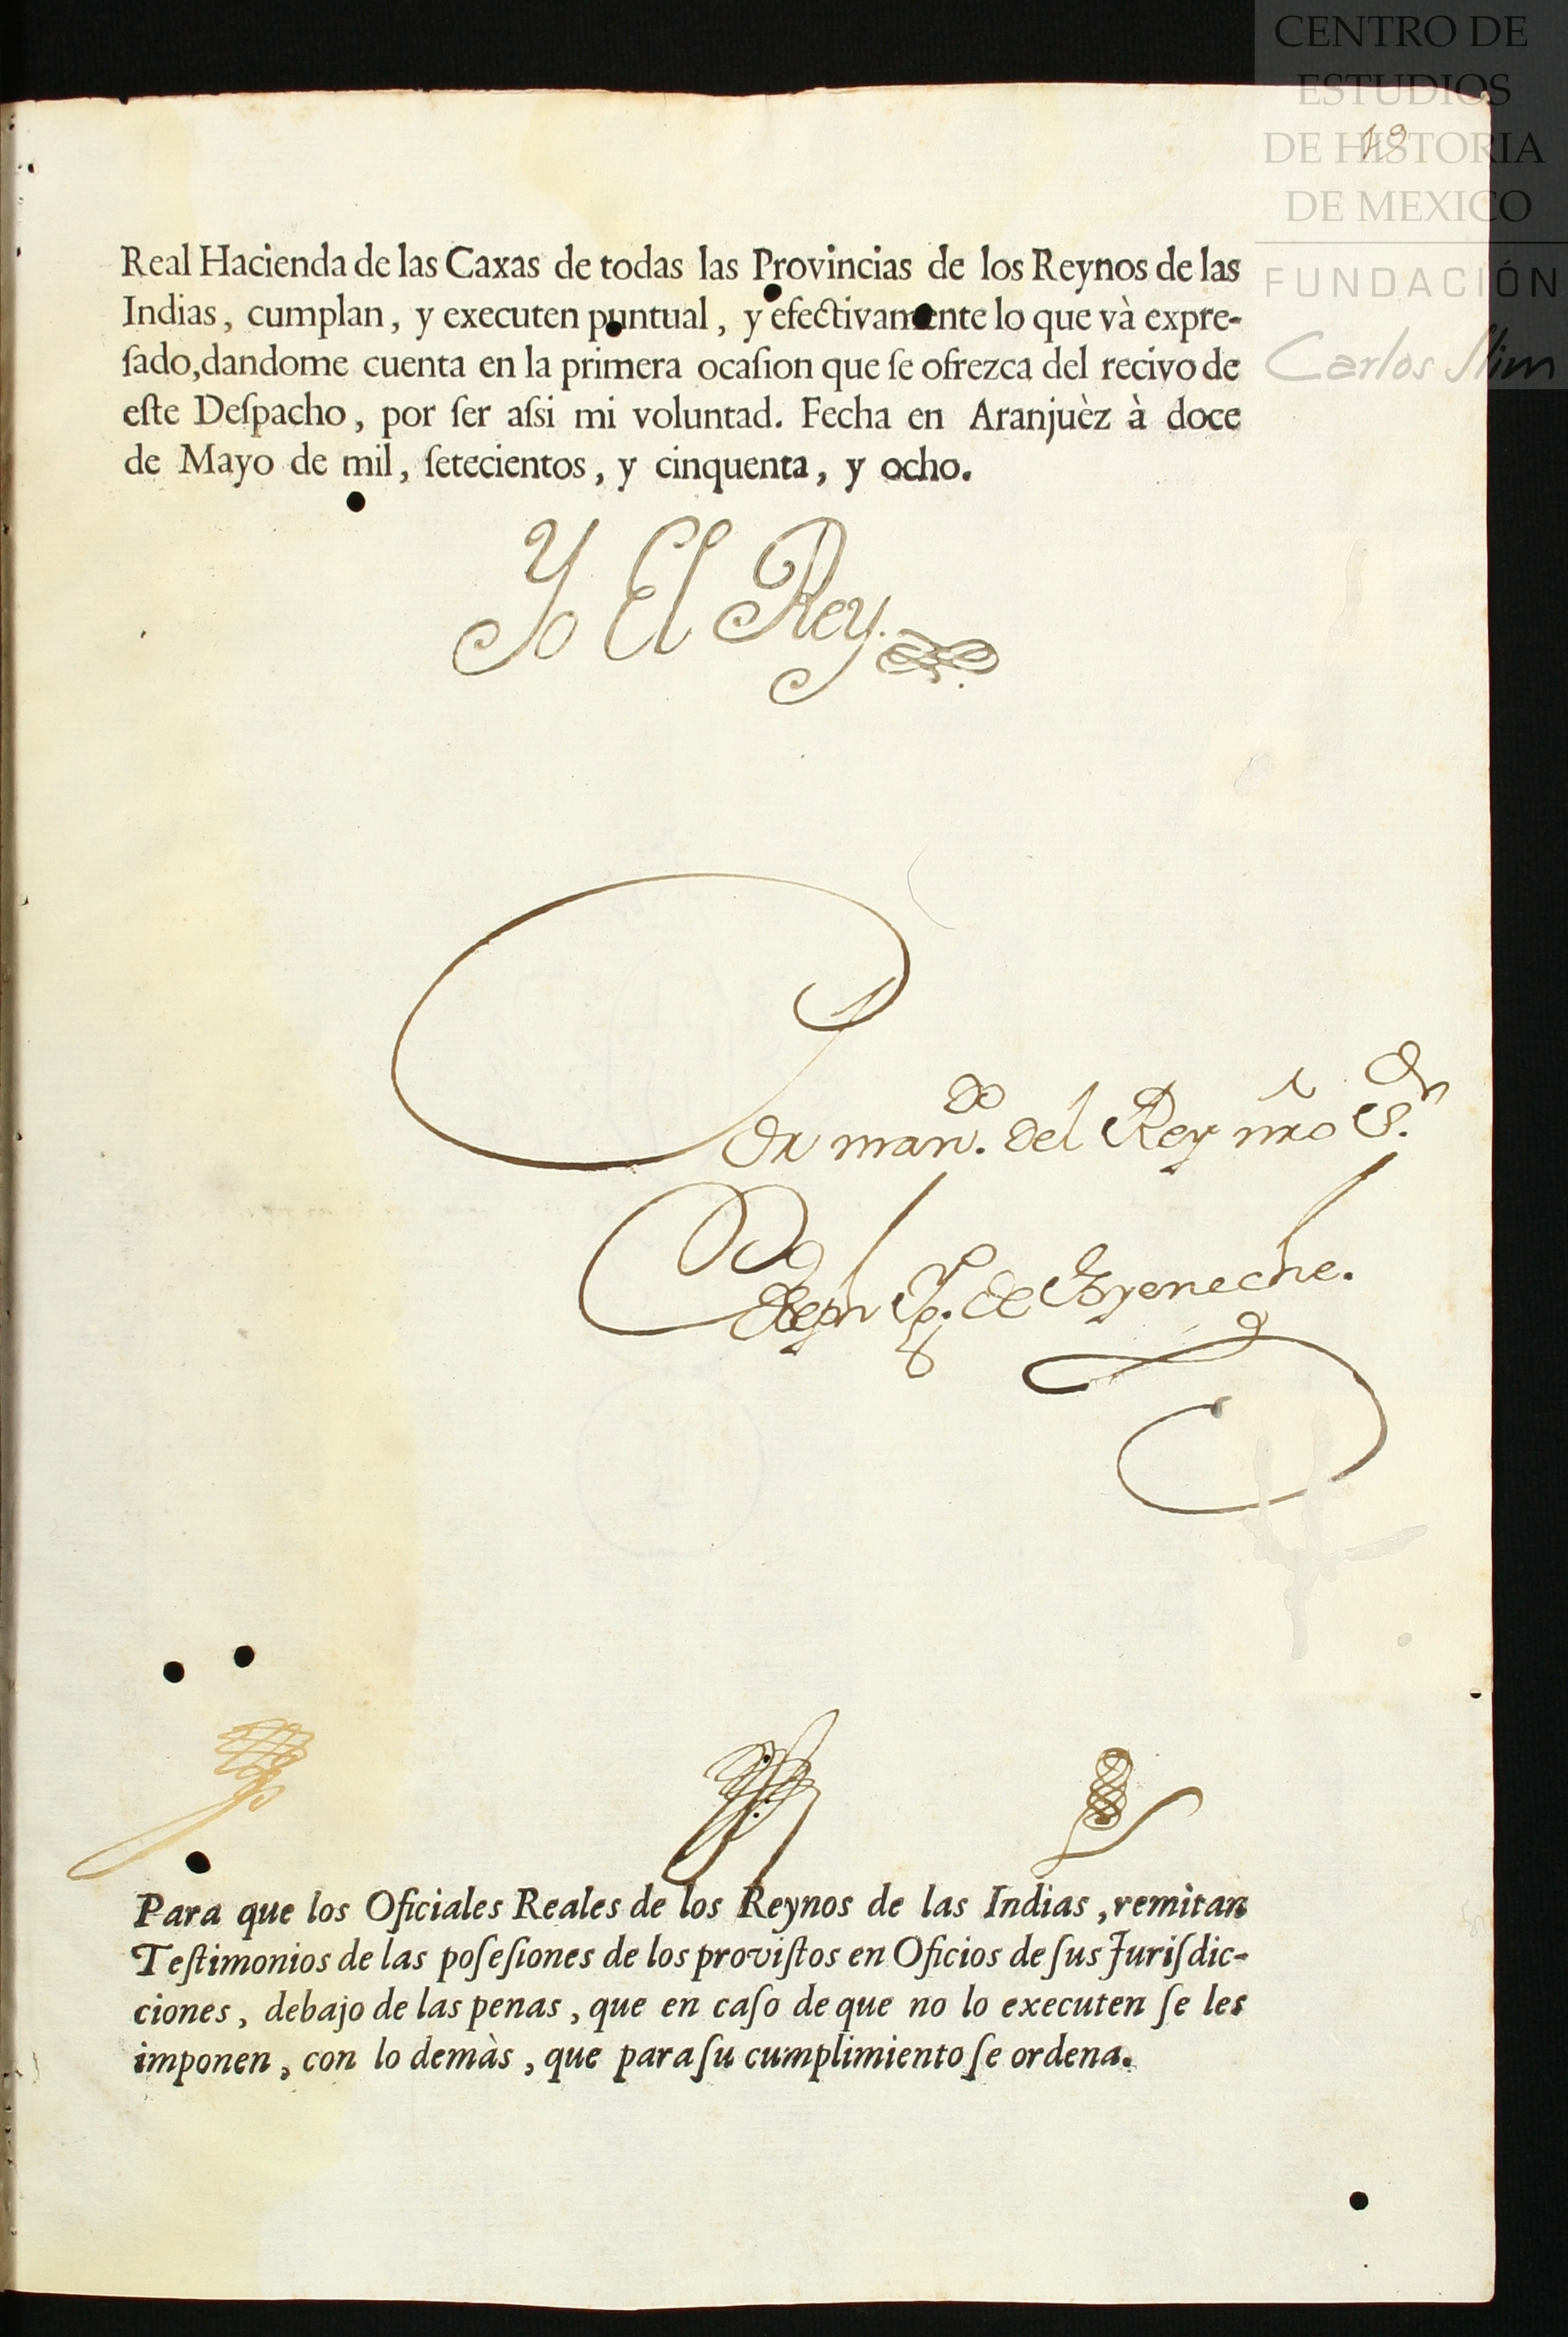 CENTRO DE
ESTUDIOS
DE HISTORIA
DE MEXICO
FUNDACIÓN
Carlos Slim
19
Real Hacienda de las Caxas de todas las Provincias de los Reynos de las
Indias, cumplan, y executen puntual, y efectivamente lo que và expre-
ſado,dandome cuenta en la primera ocaſion que ſe ofrezca del recivo de
eſte Deſpacho, por ſer aſsi mi voluntad. Fecha en Aranjuèz à doce
de Mayo de mil, ſetecientos, y cinquenta, y ocho.
Yo El Rey.
Por man.do del Rey nro S.or
Joseph Ig.o de Goyeneche.
Para que los Oficiales Reales de los Reynos de las Indias, remitan
Teſtimonios de las poſeſiones de los proviſtos en Oficios de ſus Juriſdic-
ciones, debajo de las penas, que en caſo de que no lo executen ſe les
imponen, con lo demàs, que para ſu cumplimiento ſe ordena.